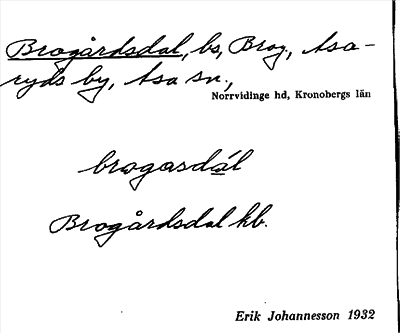 Brogårdsdal, bs, Brog., Asa-
ryds by, Asa sn.,
Norrvidinge hd, Kronobergs län
brogasdál
Brogårdsdal kb.
Erik Johannesson 1932